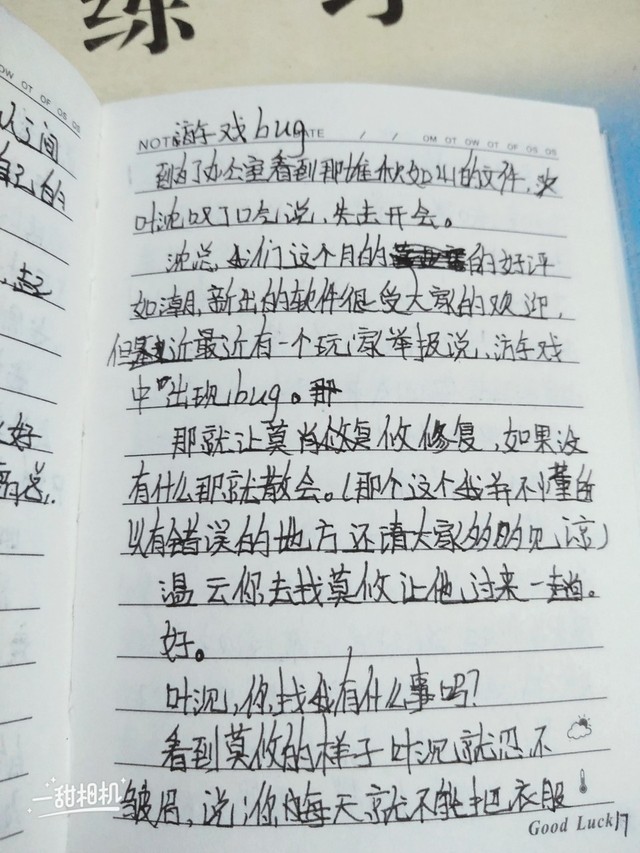 练习
OW OT OF OS OS
人之间
自己的
起
好
NOTE 游戏bug DATE / / OM OT OW OT OF OS OS
到了办公室看到那堆积如山的文件,
叶沈叹了口气说,先去开会。
沈总,我们这个月的的好评
如潮,新出的软件很受大家的欢迎,
但最近最近有一个玩家举报说,游戏
中"出现bug。那
那就让莫肖攸复攸修复,如果没
有什么那就散会。(那个这个我并不懂所
以有错误的地方还请大家多的见谅)
温云你去找莫攸让他过来一趟。
好。
叶沉,你找我有什么事吗?
看到莫攸的样子叶沉就忍不
皱眉,说:你每天就不能把衣服
Good Luck 17
一甜相机